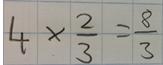 4 × 2/3 = 8/3